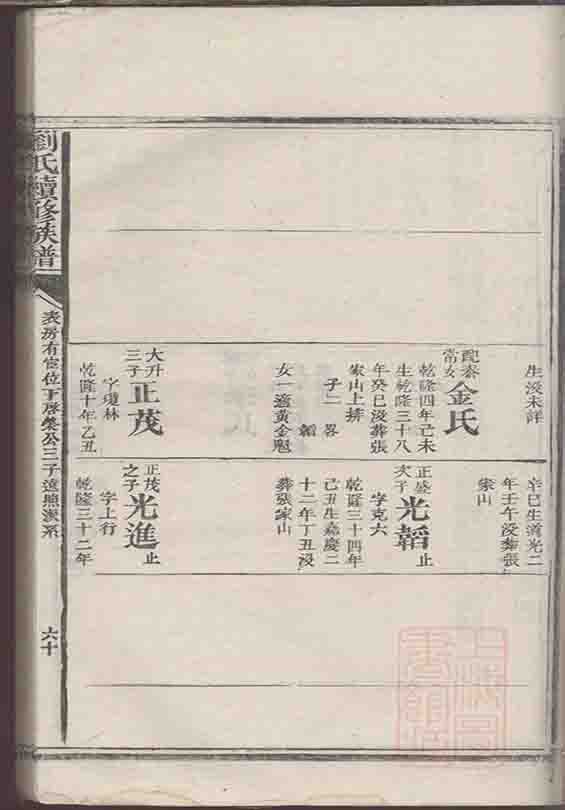 生没未詳
配泰
常女
金氏
乾隆四年己未
生乾隆三十八
年癸巳没葬張
家山上排
子二 畧
韜
女一適黃金魁
大升
三子
正茂
字瓊林
乾隆十年乙丑
辛巳生道光二
年壬午没葬張
家山
正盛
次子
光韜
止
字克六
乾隆三十四年
己丑生嘉慶二
十二年丁丑没
葬張家山
正茂
之子
光進
止
字上行
乾隆三十二年
劉氏續修族譜
六十